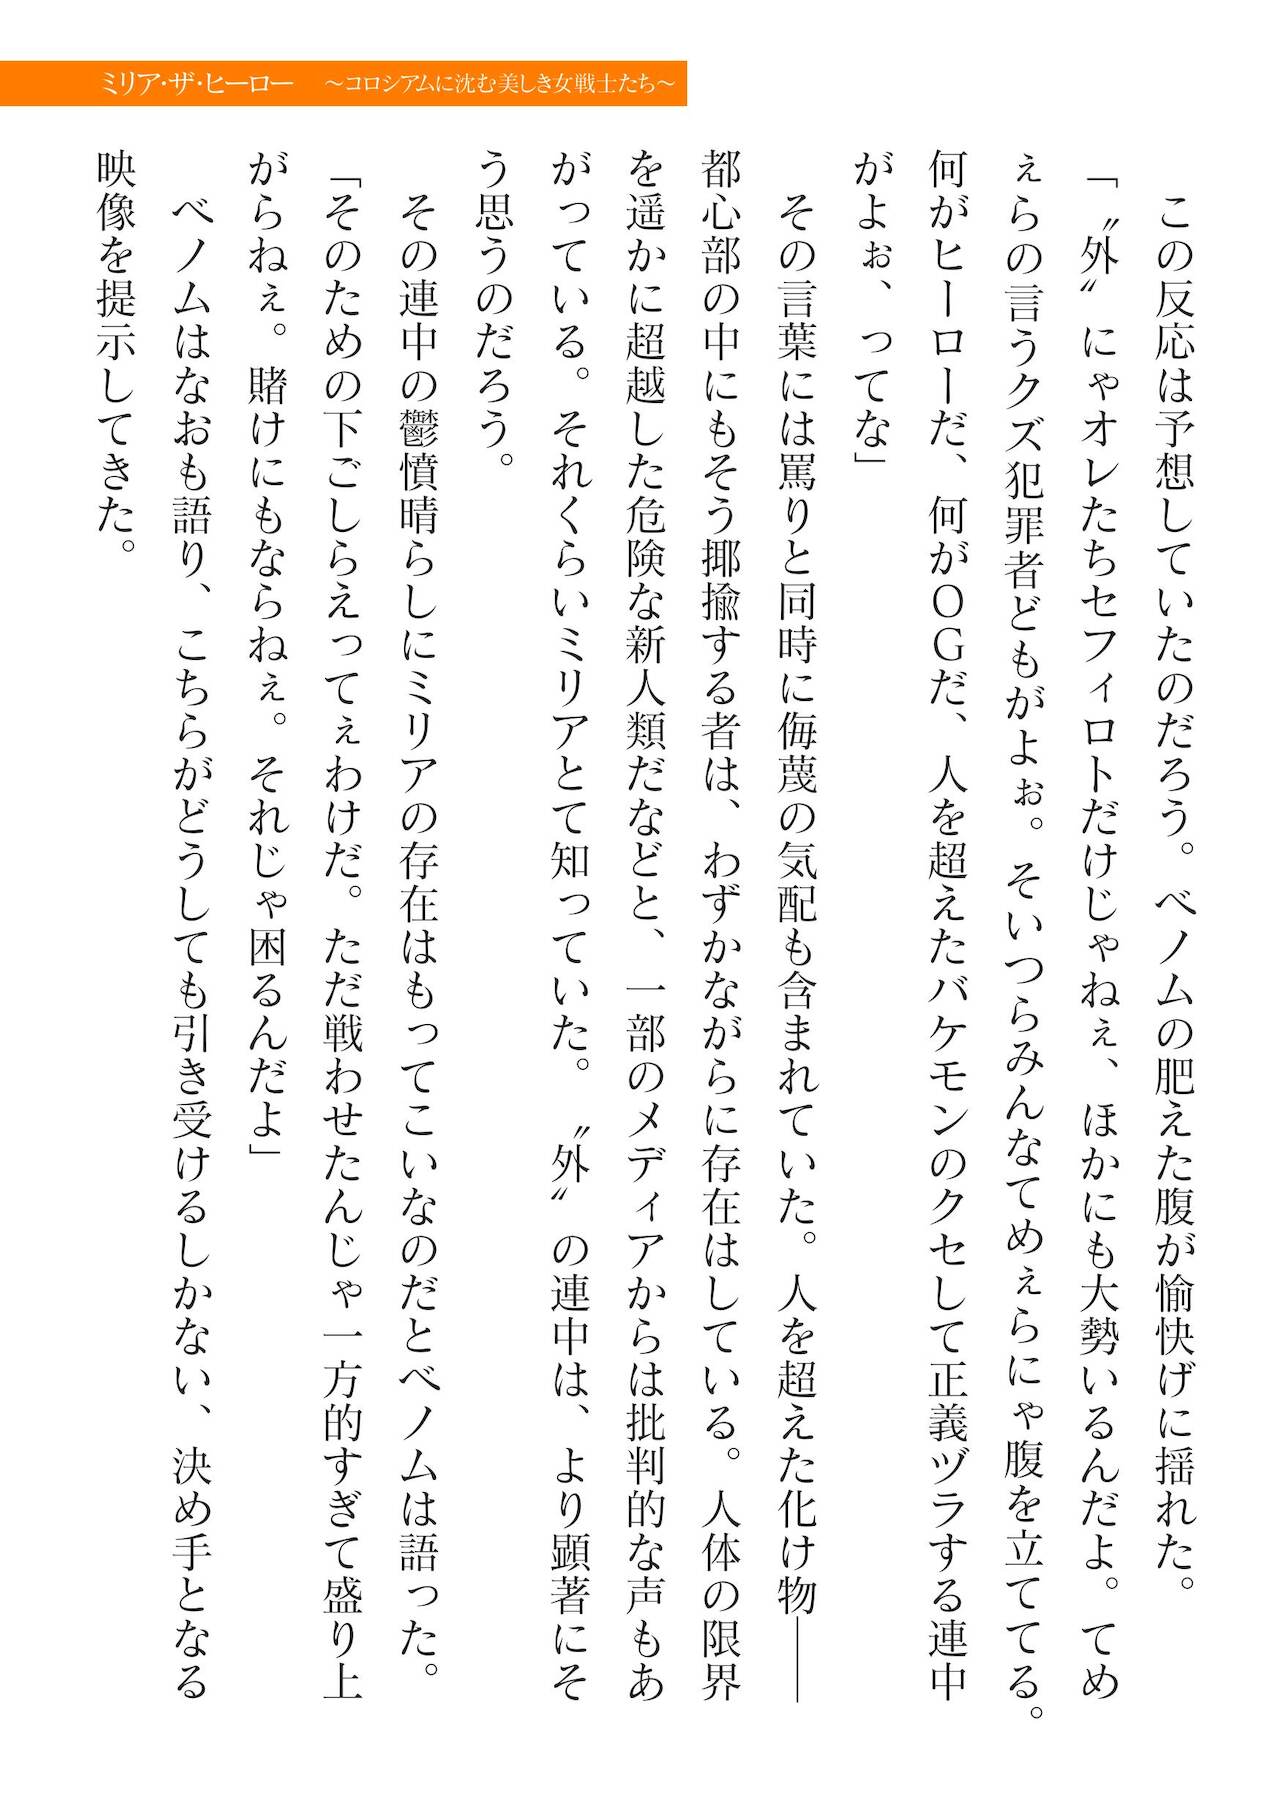 ミリア・ザ・ヒーロー　～コロシアムに沈む美しき女戦士たち～
　この反応は予想していたのだろう。ベノムの肥えた腹が愉快げに揺れた。
「〝外〟にゃオレたちセフィロトだけじゃねぇ、ほかにも大勢いるんだよ。てめ
ぇらの言うクズ犯罪者どもがよぉ。そいつらみんなてめぇらにゃ腹を立ててる。
何がヒーローだ、何がＯＧだ、人を超えたバケモンのクセして正義ヅラする連中
がよぉ、ってな」
　その言葉には罵りと同時に侮蔑の気配も含まれていた。人を超えた化け物――
都心部の中にもそう揶揄する者は、わずかながらに存在はしている。人体の限界
を遥かに超越した危険な新人類だなどと、一部のメディアからは批判的な声もあ
がっている。それくらいミリアとて知っていた。〝外〟の連中は、より顕著にそ
う思うのだろう。
　その連中の鬱憤晴らしにミリアの存在はもってこいなのだとベノムは語った。
「そのための下ごしらえってぇわけだ。ただ戦わせたんじゃ一方的すぎて盛り上
がらねぇ。賭けにもならねぇ。それじゃ困るんだよ」
　ベノムはなおも語り、こちらがどうしても引き受けるしかない、決め手となる
映像を提示してきた。